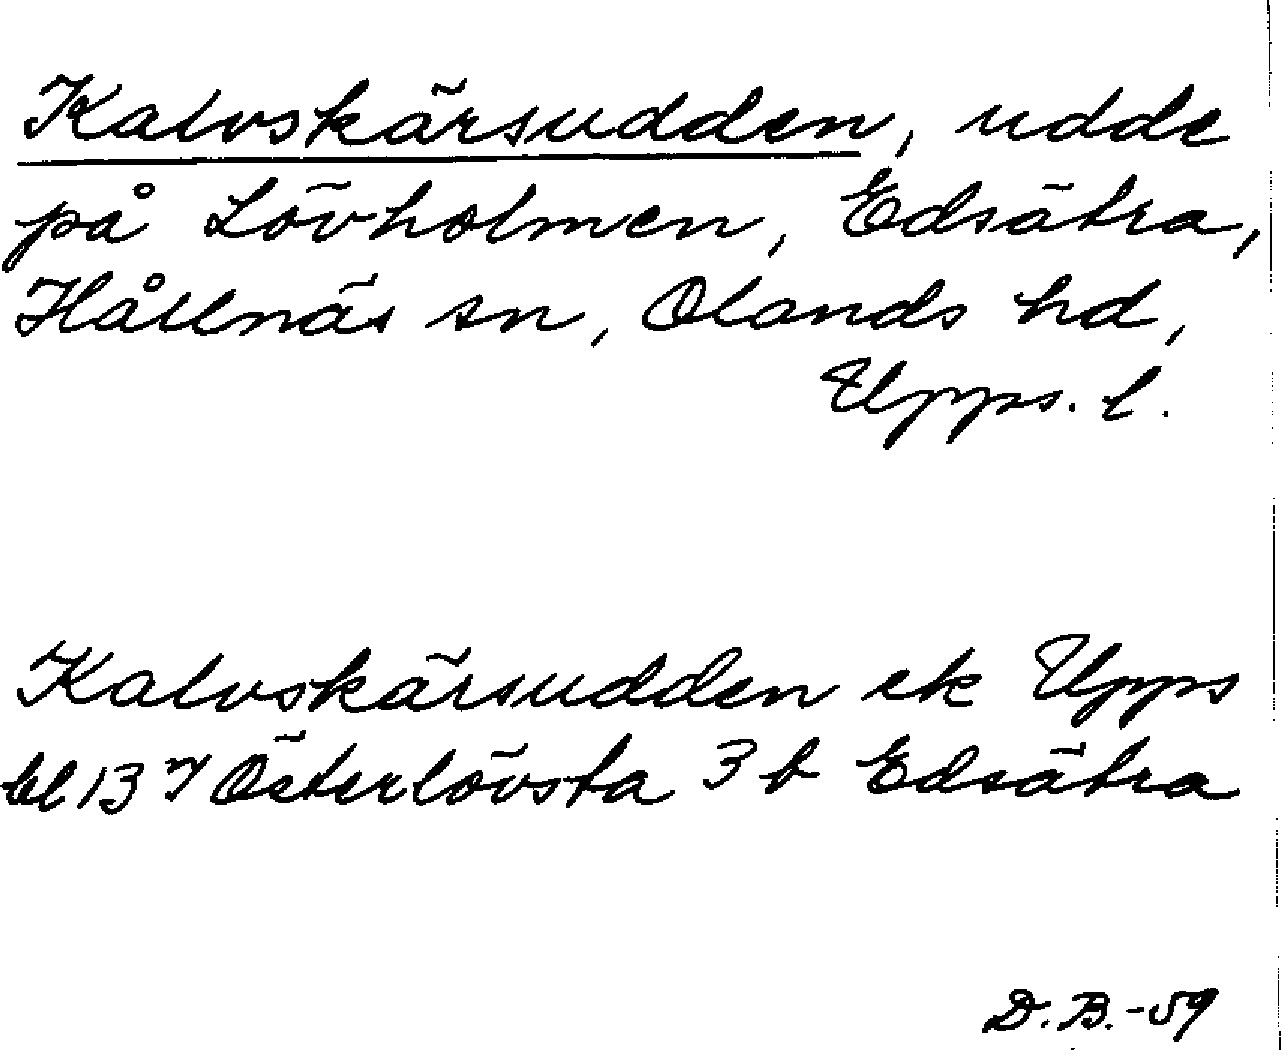 Kalvskärsudden, udde
på Lövholmen, Edsätra,
Hållnäs sn, Olands hd,
Upps. l.
Kalvskärsudden ek Upps
bl 13 Österlövsta 3 b Edsätra
D.B.-59